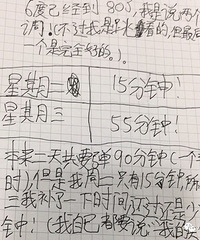 6度已经到 80了,我是说两个
周.(不过我是早水看的,但最后
一个是完全好的。).
星期一 15分钟!
星期三 55分钟!
本来二天共要弹90分钟(一个半
时),但是我周二只有15分钟,所
三我补了一下时间(不过还是少
钟!(我自己都要说"我的天